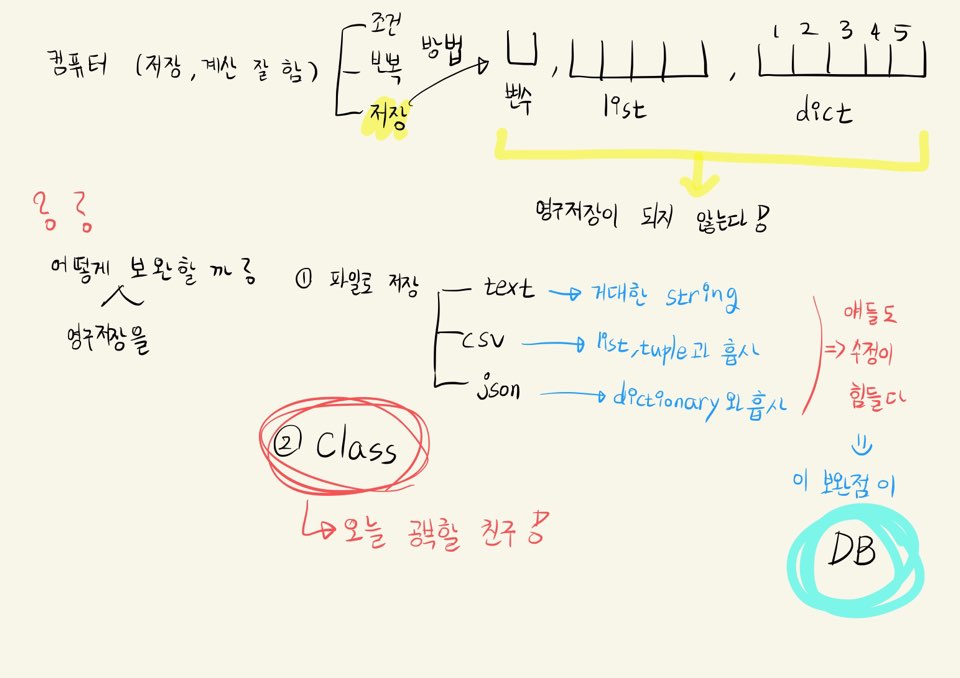 컴퓨터 (저장, 계산 잘 함)
조건
반복
저장
방법
변수
list
1 2 3 4 5
dict
영구저장이 되지 않는다!
어떻게 보완할까?
영구저장을
① 파일로 저장
text → 거대한 string
csv → list, tuple과 흡사
json → dictionary와 흡사
얘들도
=> 수정이
힘들다
이 보완점이
DB
② Class
오늘 공부할 친구!